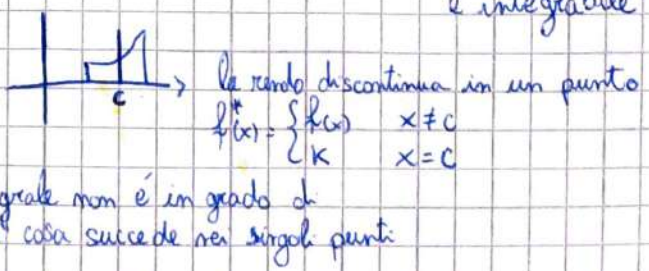 è integrabile
c
la rendo discontinua in un punto
f*(x) = { f(x) x ≠ c
{ K x = c
grale non é in grado di
cosa succede nei singoli punti